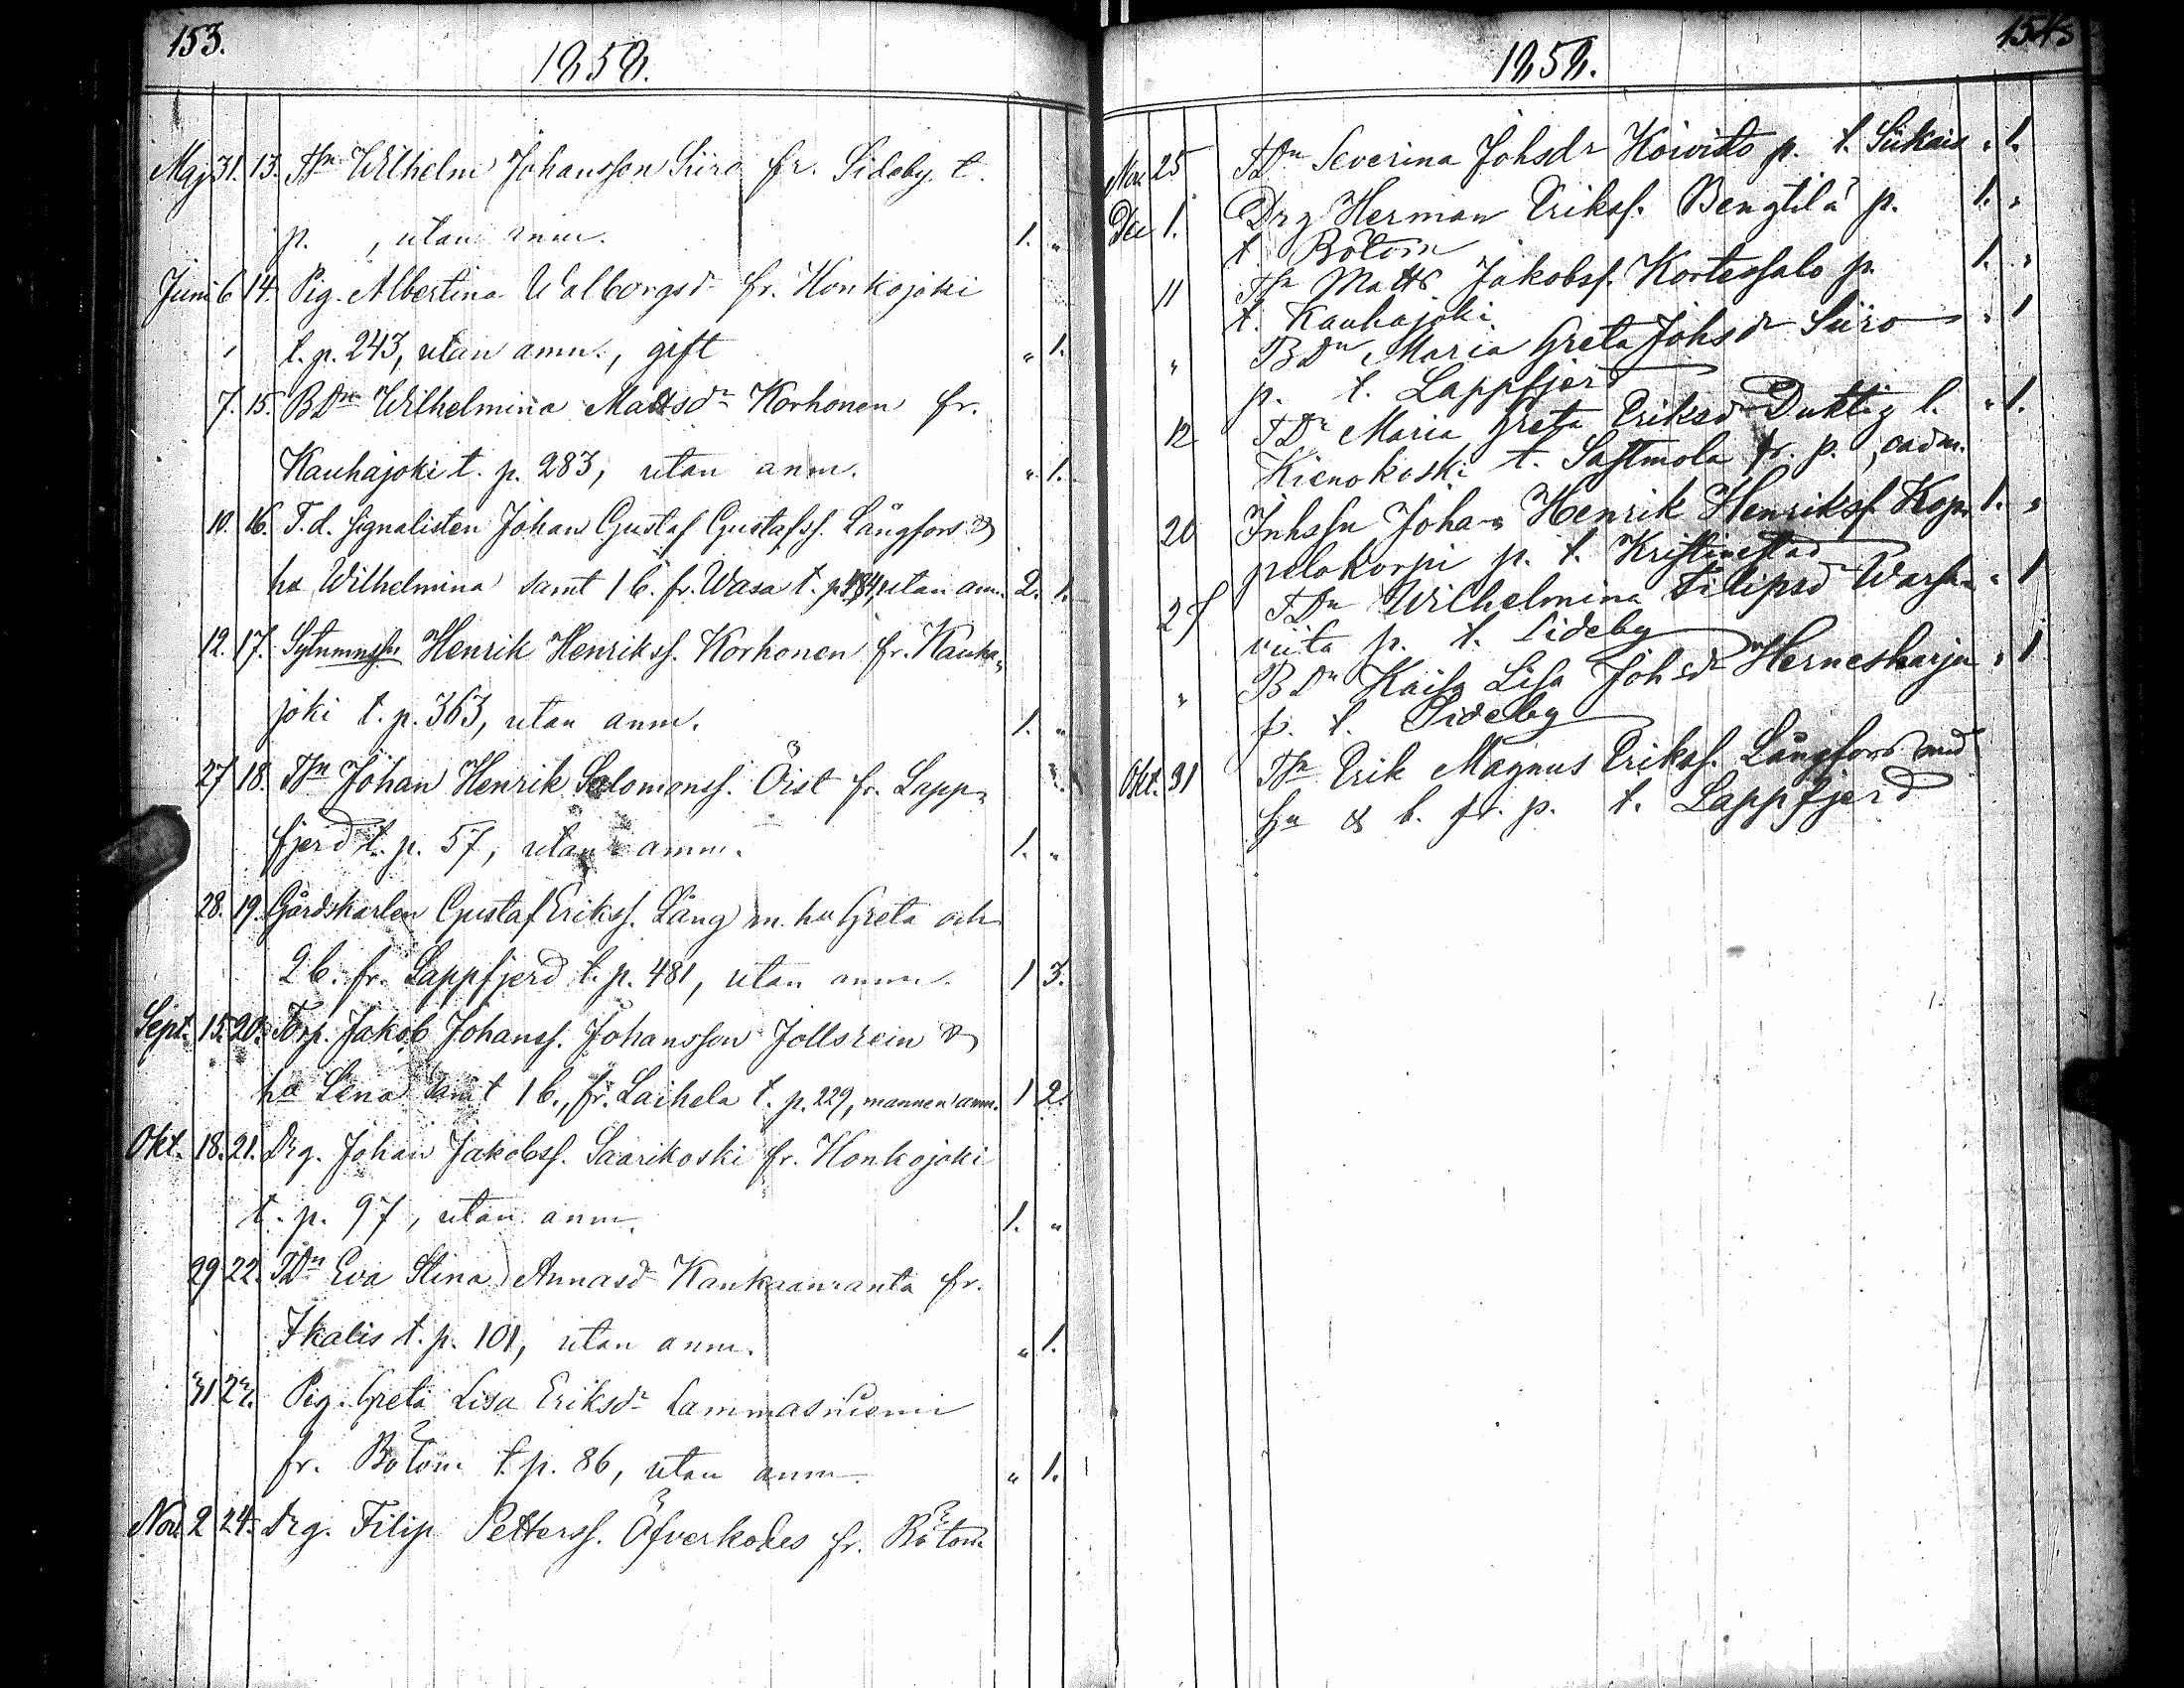 153.
1858.
Maj 31. 13. Tsn Wilhelm Johansson Siiro fr. Sideby t.
p. , utan anm. 1. "
Juni 6 14. Pig. Albertina Walborgsdr fr. Honkojoki
t. p. 243, utan anm., gift " 1.
7. 15. BDn Wilhelmina Mattsdr Korhonen fr.
Kauhajoki t. p. 283, utan anm. " 1.
10. 16. T. d. signalisten Johan Gustaf Gustafss. Långfors &
hu Wilhelmina samt 1 b. fr. Wasa t. p. 484, utan anm. 2. 1.
12. 17. Sytnmngsn Henrik Henrikss. Korhonen fr. Kauha-
joki t. p. 363, utan anm. 1. "
27 18. Tsn Johan Henrik Salomonss. Öist fr. Lapp-
fjerd t. p. 57, utan anm. 1. "
28. 19. Gårdskarlen Gustaf Erikss. Lång m. hu Greta och
2 b. fr. Lappfjerd t. p. 481, utan anm. 1 3.
Sept. 15. 20. Torp. Jakob Johanss. Johansson Jollsrein &
hu Lena samt 1 b., fr. Laihela t. p. 229, mannen anm. 1 2.
Okt. 18. 21. Drg. Johan Jakobss. Saarikoski fr. Honkojoki
t. p. 97, utan anm. 1. "
29 22. TDn Eva Stina Annasdr Kankaanranta fr.
Ikalis t. p. 101, utan anm. " 1.
31 23. Pig. Greta Lisa Eriksdr Lammasniemi
fr. Bötom t. p. 86, utan anm. " 1.
Nov. 2 24. Drg. Filip Petterss. Öfverkodes fr. Bötom
1858.
Nov. 25 TDn Severina Johsdr Koivisto p. t. Siikais " 1.
Dec 1. Drg Herman Erikss. Bengtilä p. 1. "
t Bötom
11 Tsn Matts Jakobss. Kortessalo p. 1. "
t. Kauhajoki
" BDn Maria Greta Johsdr Siiro " 1
p. t. Lappfjerd
12 TDn Maria Greta Eriksdr Duktig l. " 1.
t. Sastmola fr. p.
20 Inhsn Johan Henrik Henrikss. Kop- 1. "
pelokorpi p. t. Kristinestad
27 TDn Wilhelmina Filipsdr Warsan- " 1
viita p. t. Sideby
" BDn Kaisa Lisa Johsdr Hernesharju " 1
p. t. Sideby
Okt. 31 Tsn Erik Magnus Erikss. Långfors med
hu & b. fr. p. t. Lappfjerd